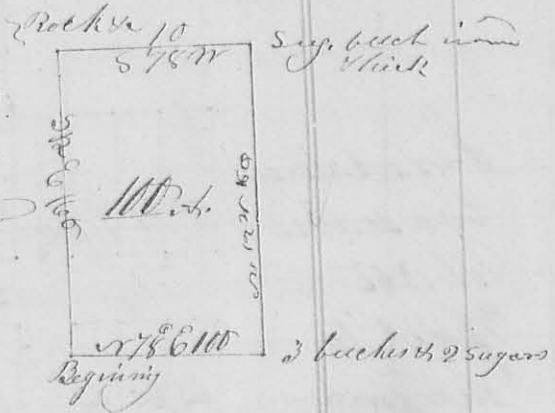 Rock &c
10
S 78 W
Sug. beech iron
& hick
100 A.
N 12 W 160
N 78 E 100
3 beeches & 2 sugars
Beginning